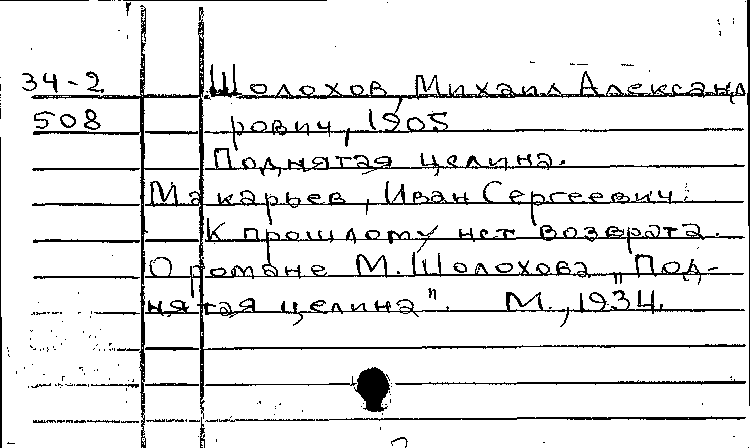 34-2 Шолохов, Михаил Александ
508 рович, 1905
Поднятая целина.
Макарьев, Иван Сергеевич.
К прошлому нет возврата.
О романе М. Шолохова „Под-
нятая целина". М., 1934.